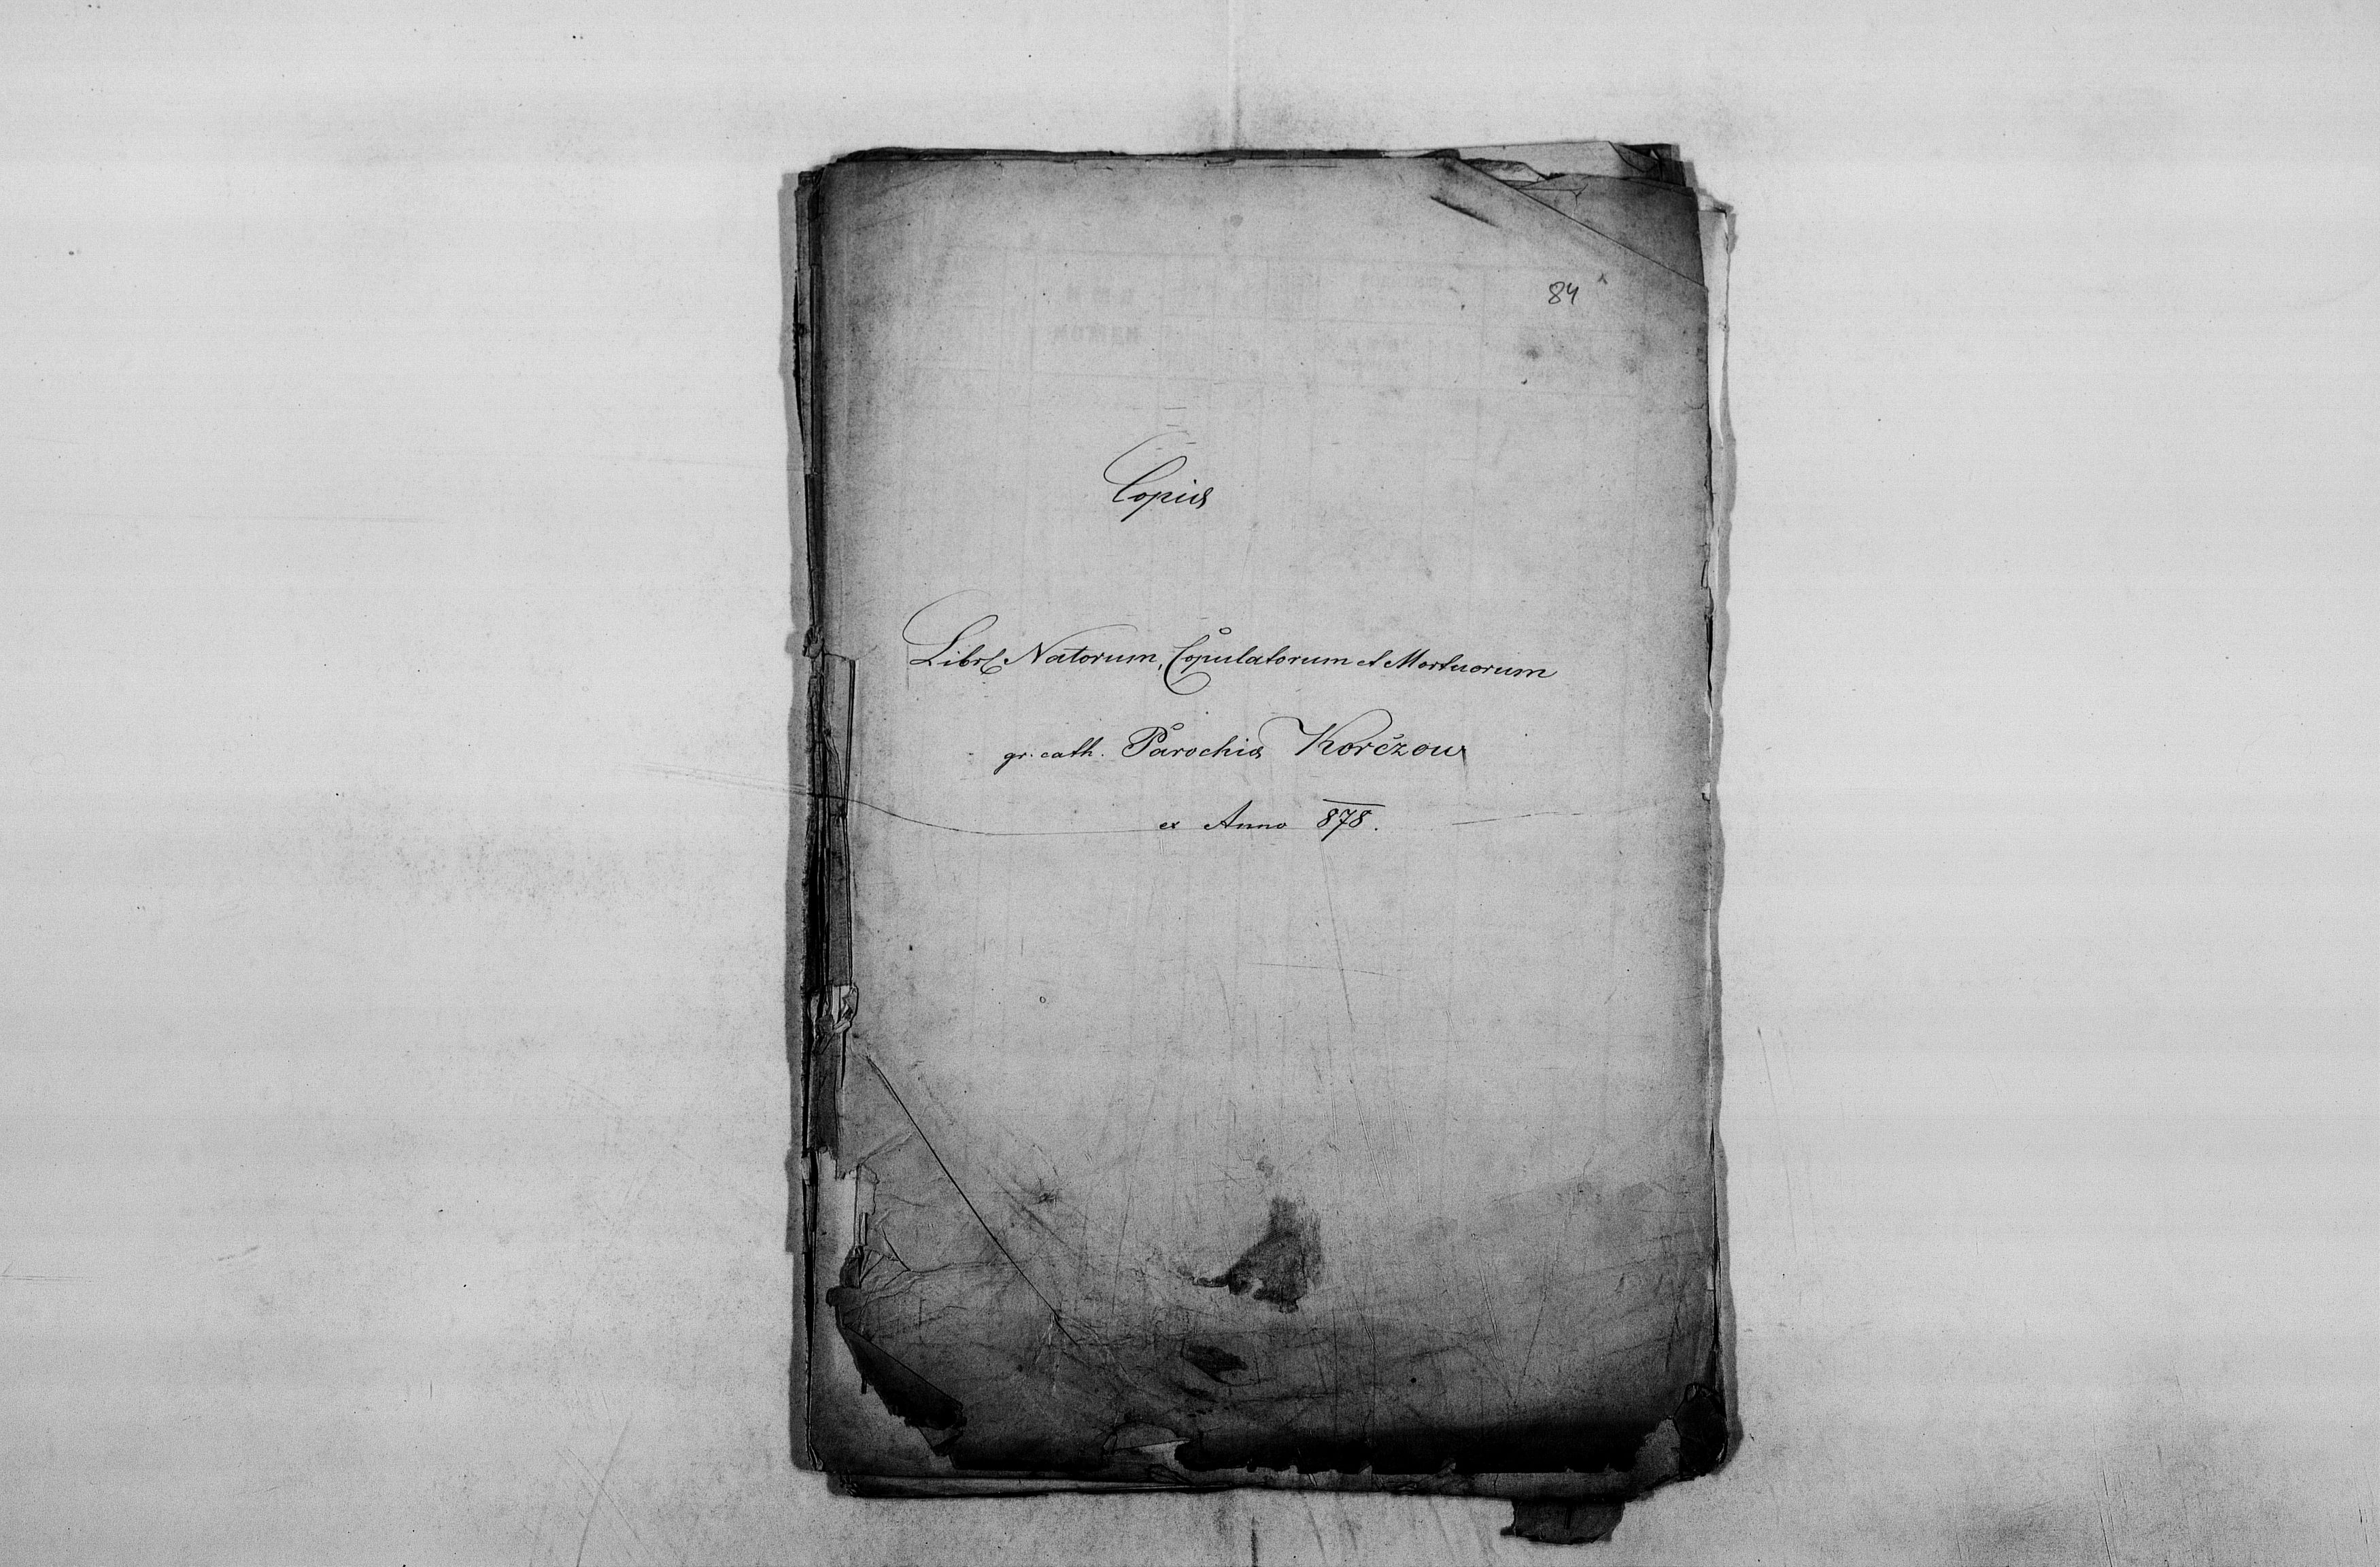 84
Copia
Libri Natorum, Copulatorum et Mortuorum
gr. cath. Parochia Korčzow
ex Anno 878.